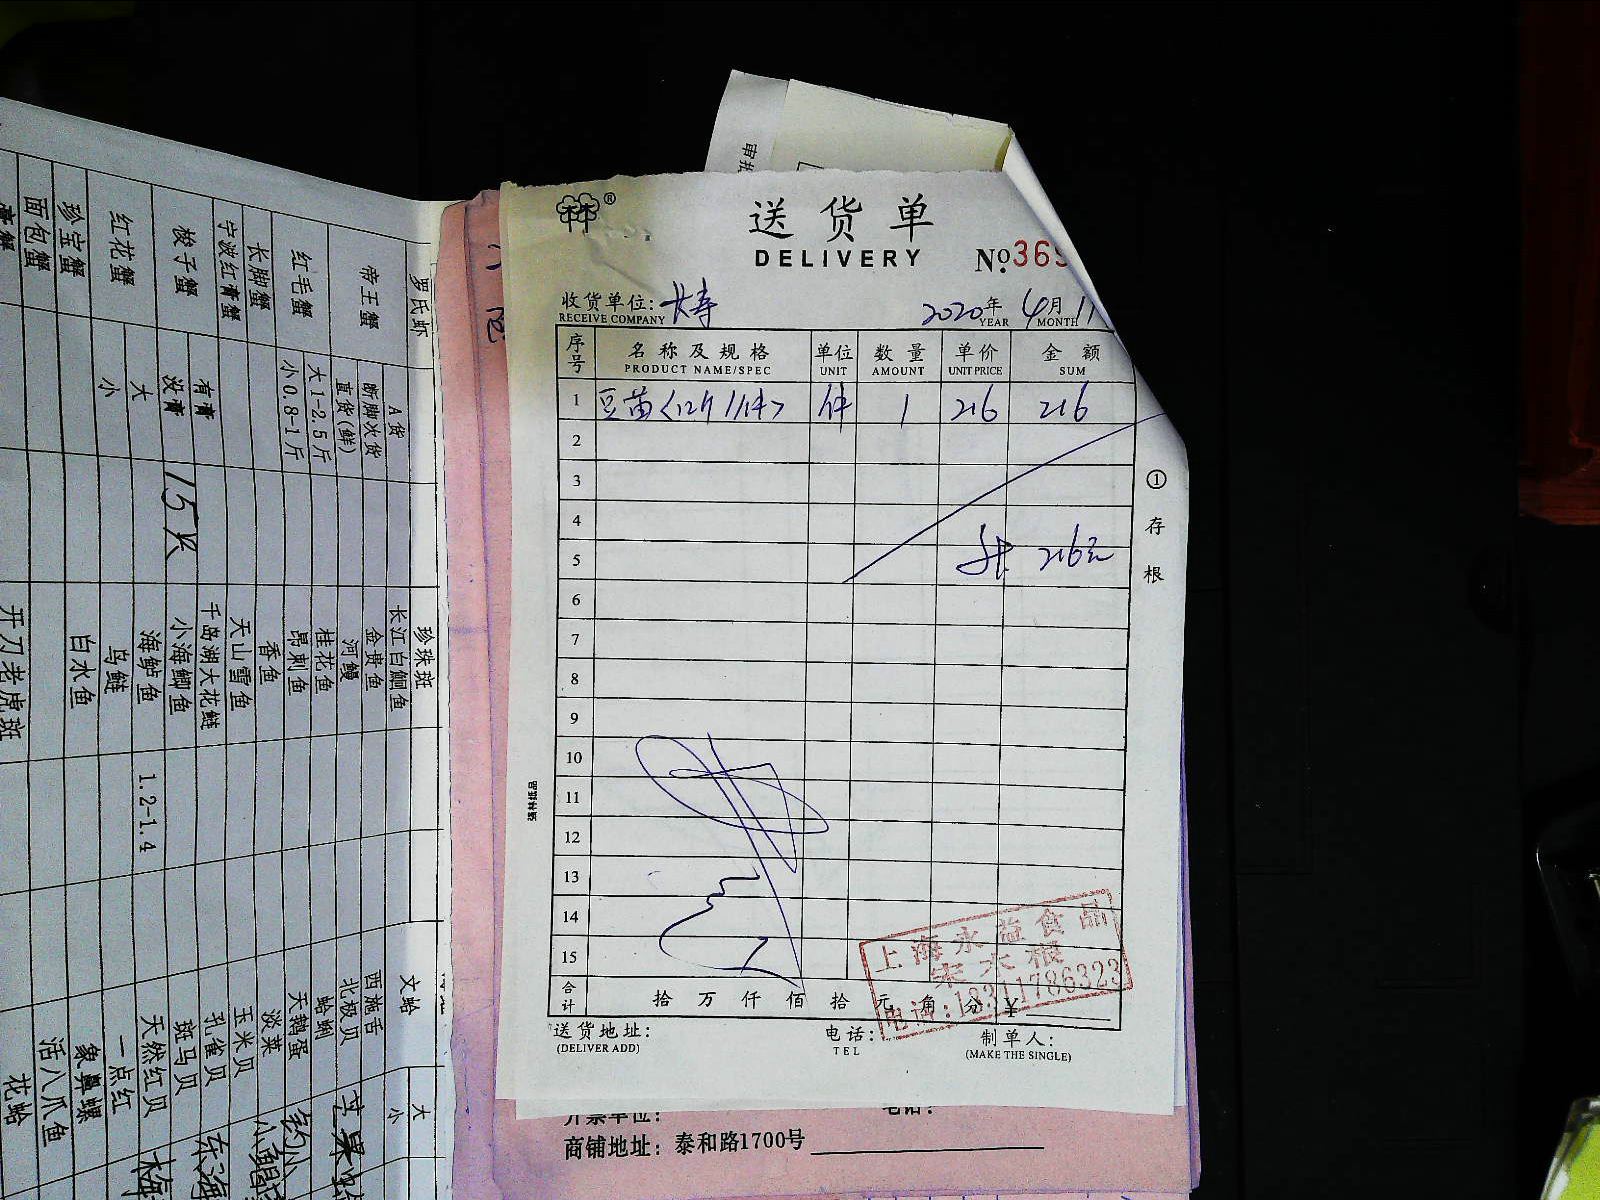 送货单
DELIVERY
№369
收货单位: 长寿
RECEIVE COMPANY
2020年 4月 11
YEAR MONTH
序号 名称及规格 单位 数量 单价 金额
PRODUCT NAME/SPEC UNIT AMOUNT UNIT PRICE SUM
1 豆苗<12斤/1件> 件 1 216 216
2
3
4
5 共 216元
6
7
8
9
10
11
12
13
14
15
合计 拾 万 仟 佰 拾 元 角 分 ¥
送货地址: 电话: 制单人:
(DELIVER ADD) TEL (MAKE THE SINGLE)
①存根
强林纸品
上海永益食品
宋大根
电话:18311786323
开票单位: 电话:
商铺地址: 泰和路1700号
罗氏虾
帝王蟹
A货
断脚次货
直货(鲜)
红毛蟹
大1-2.5斤
小0.8-1斤
长脚蟹
宁波红膏蟹
梭子蟹
有膏
没膏 15只
红花蟹
大
小
珍宝蟹
面包蟹
膏蟹
珍珠斑
长江白鮰鱼
金贵鱼
河鳗
桂花鱼
昂刺鱼
香鱼
天山雪鱼
千岛湖大花鲢
小海鲫鱼
海鲈鱼 1.2-1.4
鸟鲢
白水鱼
开刀老虎斑
文蛤
大
小
西施舌
北极贝
蛤蜊
天鹅蛋
淡菜
玉米贝
孔雀贝
斑马贝
天然红贝
一点红
象鼻螺
活八爪鱼
花蛤